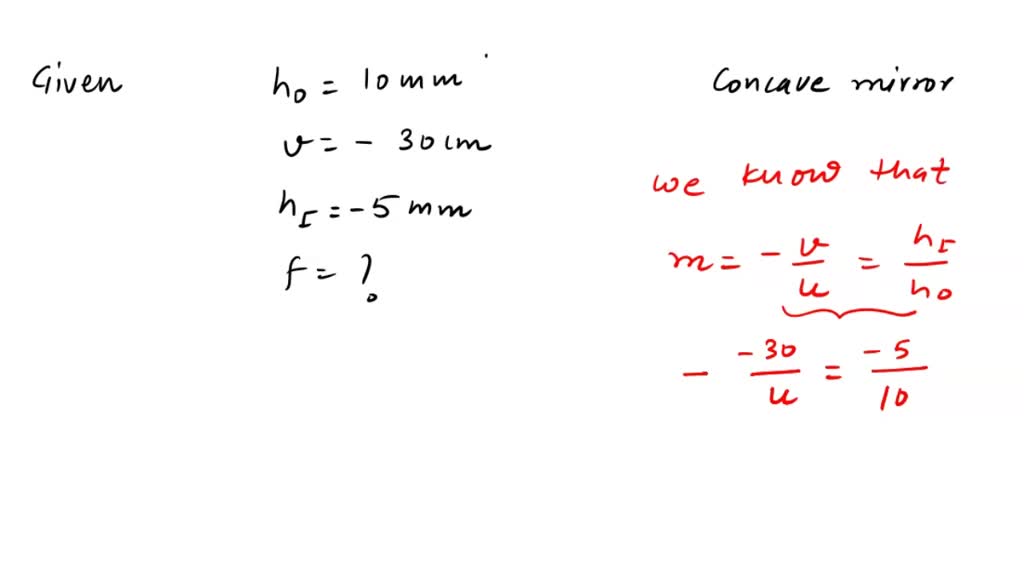 Given
h₀ = 10 mm
v = - 30 cm
h_I = - 5 mm
f = ?
Concave mirror
we know that
m = - v/u = h_I/h₀
- -30/u = -5/10